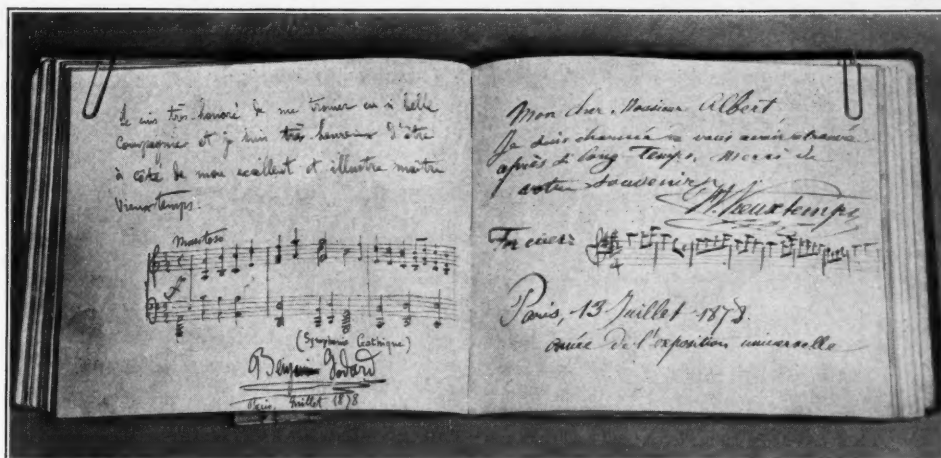 Je suis très honoré de me trouver en si belle
Compagnie et je suis très heureux d'être
à côté de mon excellent et illustre maître
Vieuxtemps.
Maestoso
(Symphonie Gothique)
Benjamin Godard
Paris. Juillet 1878
Mon cher Monsieur Albert
Je suis charmé de vous avoir retrouvé
après si long temps. Merci de
votre souvenir
H. Vieuxtemps
Paris, 13 Juillet 1878.
année de l'exposition universelle